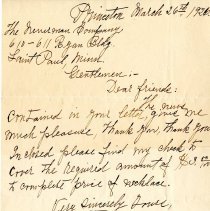 Princeton March 26th 1926
The Neverman Company
610-611 Ryan Bldg.
Saint Paul, Minn.
Gentlemen:-
Dear friends:
The news
contained in your letter gave me
much pleasure, thank you, thank you
Inclosed please find my check to
cover the required amount of
to complete price of necklace.
Very Sincerely Yours,